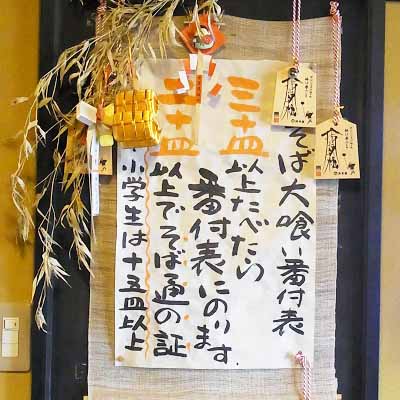 そば大喰い番付表
三十皿
以上たべたら
番付表にのります。
二十皿
以上でそば通の証
小学生は十五皿以上